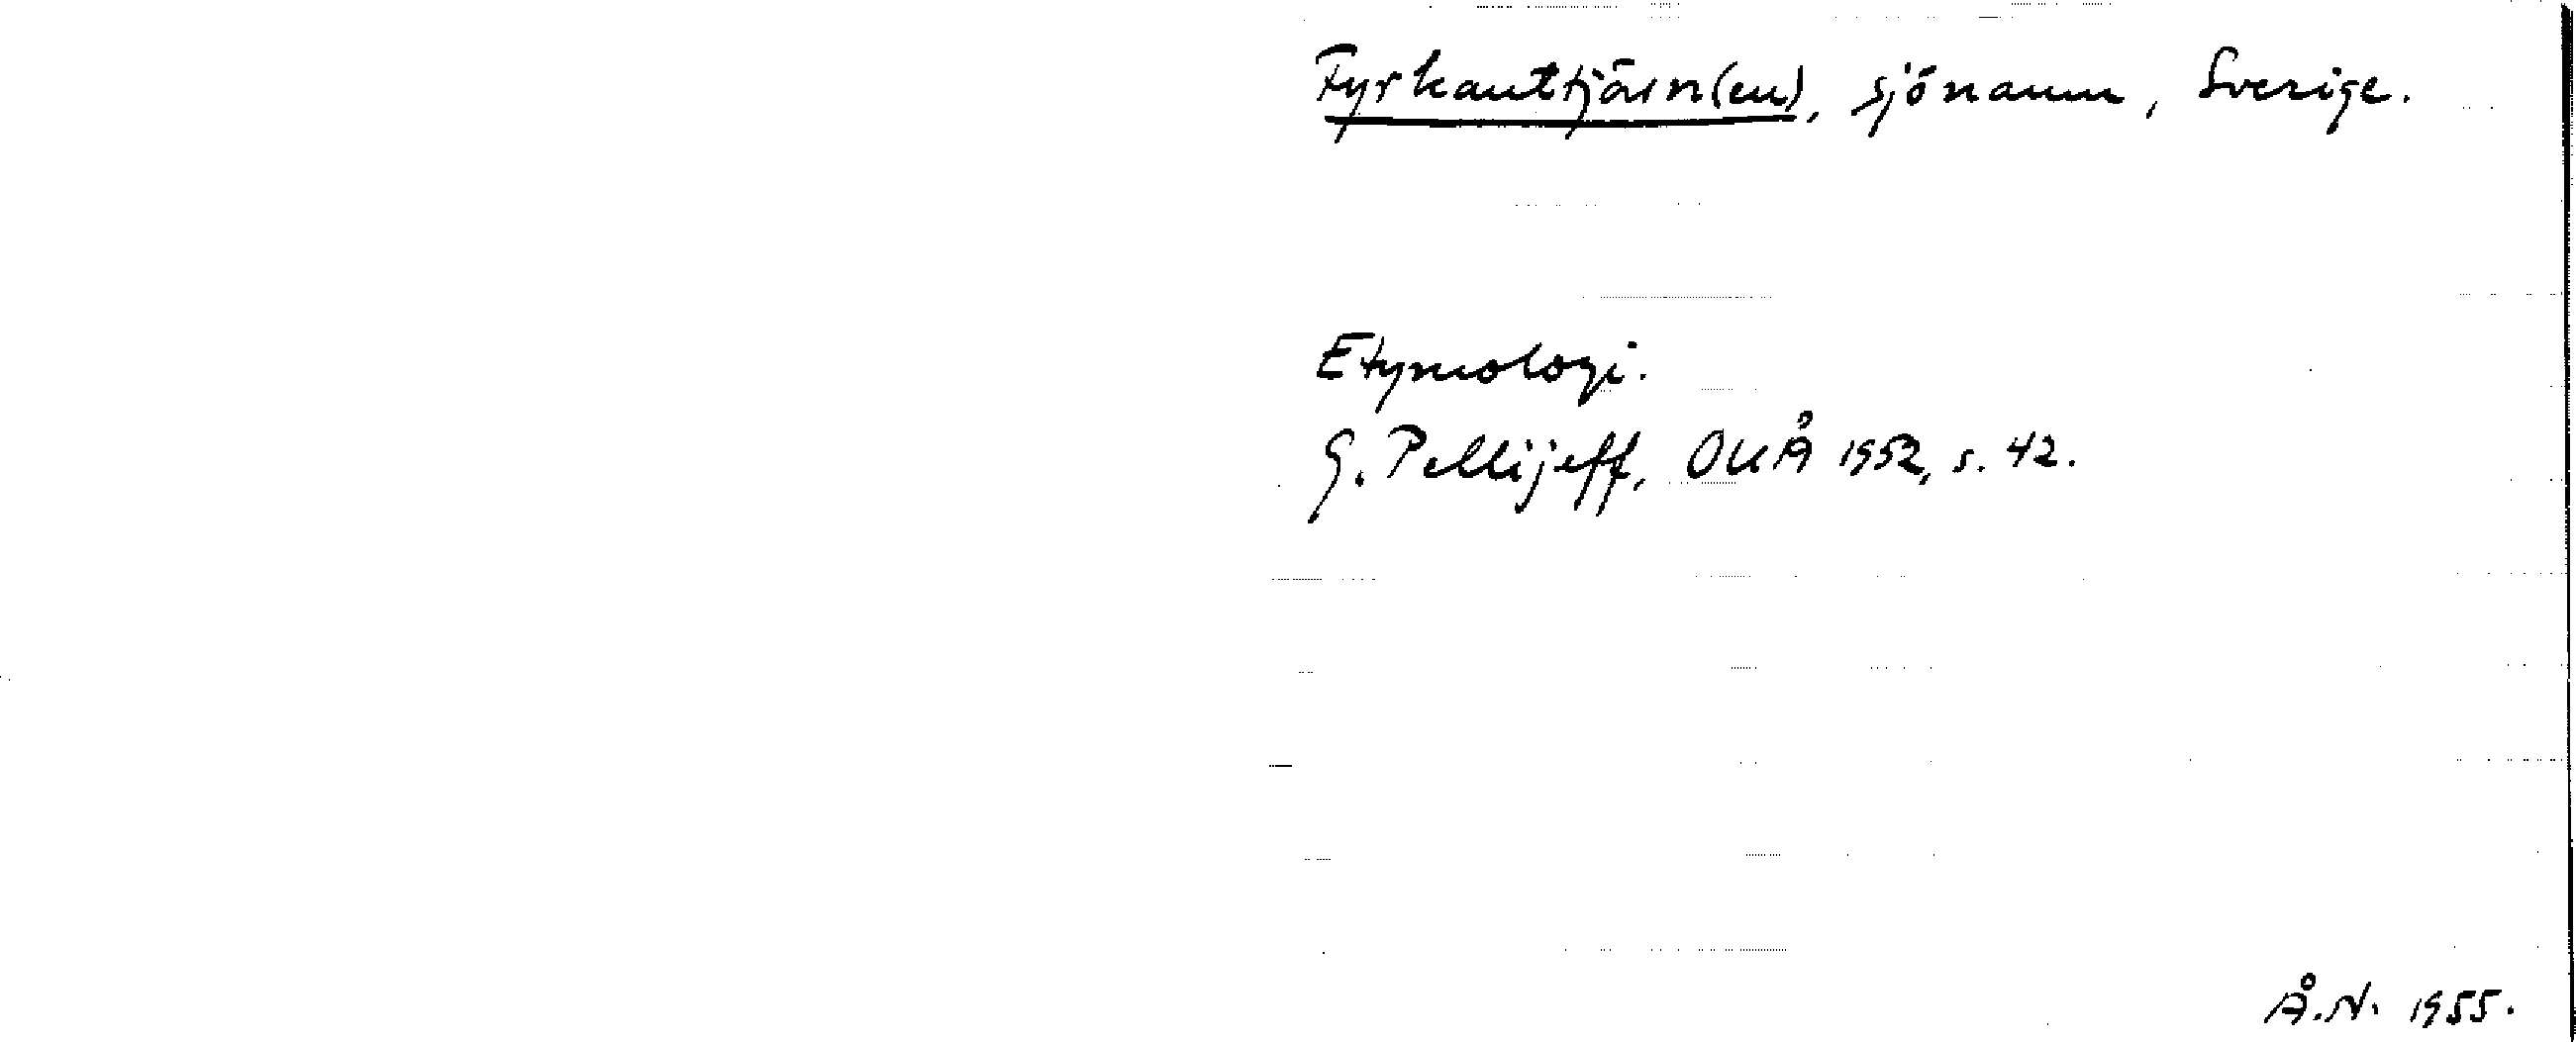 Fyrkanttjärn(en), sjönamn, Sverige.
Etymologi.
G. Pellijeff, OUÅ 1952, s. 42.
Å.N. 1955.